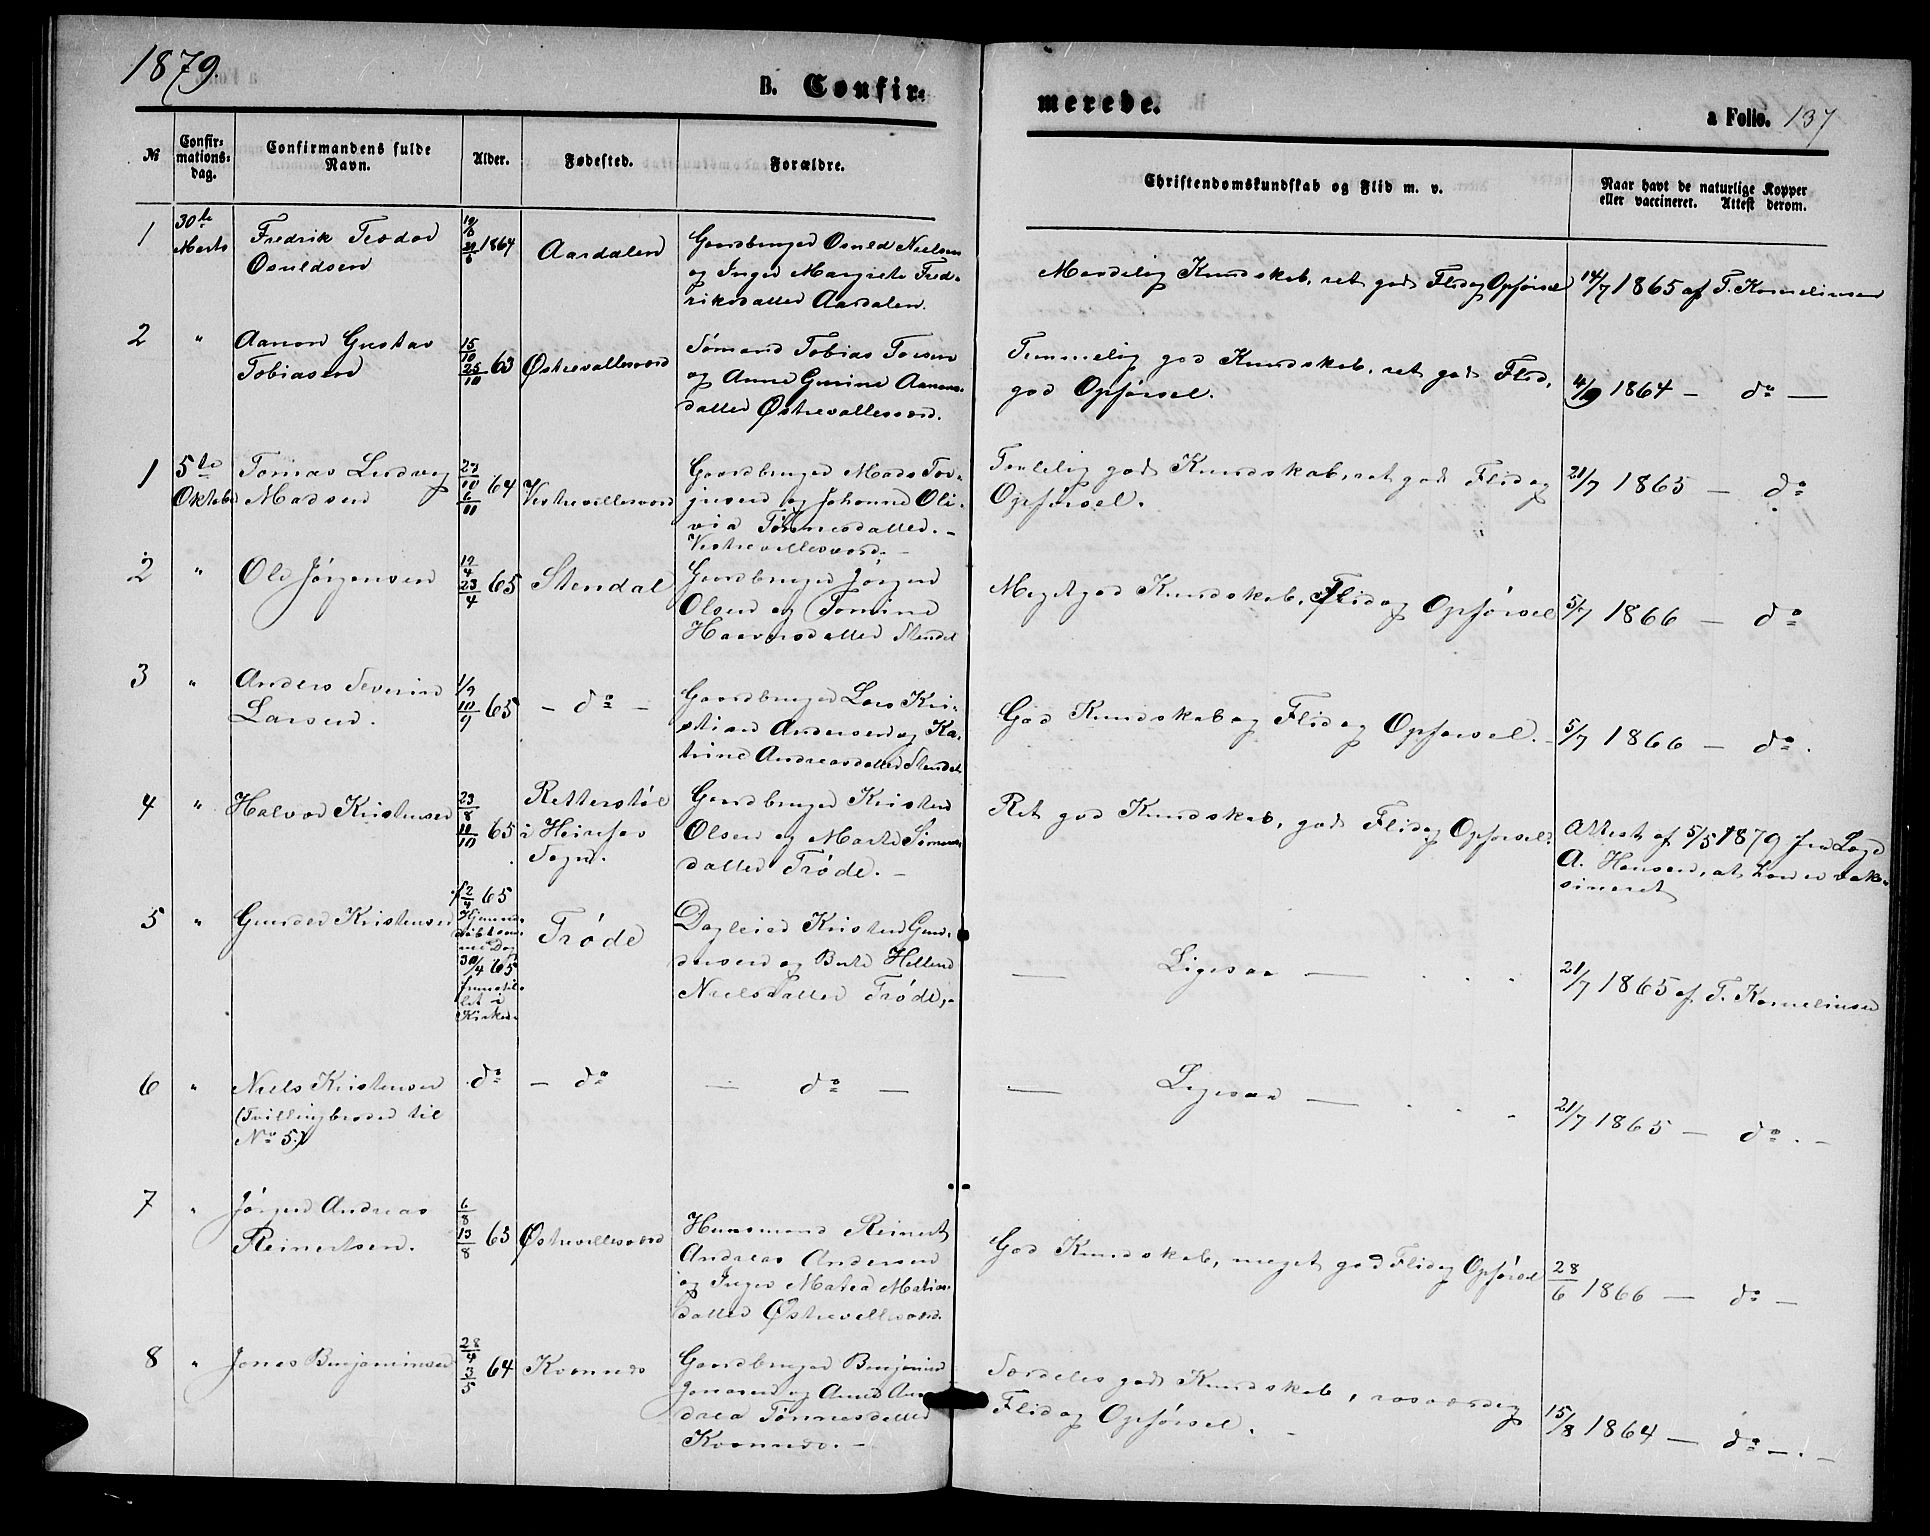 1879.
B. Confir=
merede.
a Folio. 137
No
Confir-
mations=
dag.
Confirmandens fulde
Navn.
Alder.
Fødested.
Forældre.
Christendomskundskab og Flid m. v.
Naar havt de naturlige Kopper
eller vaccineret. Attest derom.
1
30te
Marts
Fredrik Teodor
Osuldsen
1864
Aardalen
Gaardbruger Osuld Nielsen
og Inger Margrete Fred-
riksdatter Aardalen.
Maadelig Kundskab, ret god Flid og Opførsel
14/7 1865 af T. Kornelinsen
2
"
Aanon Gustav
Tobiasen
15/10
25/10 63
Østrevallesværd
Sømand Tobias
og Anne Gurine Aanons-
datter Østrevallesværd.
Temmelig god Kundskab, ret god Flid,
god Opførsel.
4/9 1864 — do —
1
5te
Oktober
Tomas Ludvig
Madsen
27/10
6/11 64
Vestrevallesværd
Gaardbruger Mads Tor-
jusen og Johanne Oli-
via Tønnesdatter. -
Vestrevallesværd. -
Temlelig god Kundskab, ret god Flid og
Opførsel.
21/7 1865 — do
2
"
Ole Jørgensen
12/4
23/4 65
Stendal
Gaardbruger Jørgen
Olsen og Tomine
Haavorsdatter Stendal
Meget god Kundskab, Flid og Opførsel
5/7 1866 — do
3
"
Anders Severin
Larsen.
1/9
10/9 65
— do —
Gaardbruger Lars Kri-
stian Andersen og Ka-
trine Andreasdatter Stendal
God Kundskab og Flid og Opførsel. -
5/7 1866 — do.
4
"
Halvor Kristensen
23/8
10/10 65
Retterstøl
i Heirefos
Sogn.
Gaardbruger Kristen
Olsen og Marte Simons-
datter Trøde. -
Ret god Kundskab, god Flid og Opførsel.
Attest af 5/5 1879 fra Læge
A. Hansen, at han er vak-
sineret
5
"
Gunder Kristensen
f 2/4 65
Hjemme-
døbt sam-
me Dag
30/4 65
fremstil-
let i
Kirken.
Trøde
Dagleier Kristen Gun-
dersen og Berte Hellene
Nielsdatter Trøde, -
— Ligesaa — . . .
21/7 1865 af T. Kornelinsen
6
"
Niels Kristensen
(Tvillingbroder til
No 5.)
do
— do
— do —
— Ligesaa — . . .
21/7 1865 — do. —
7
"
Jørgen Andreas
Reinertsen.
6/8
13/8 63
Østrevallesværd
Huusmand Reinert
Andreas Andersen
og Inger Matea Matias-
datter Østrevallesværd.
God Kundskab, meget god Flid og Opførsel
28/6 1866 — do —
8
"
Jonas Benjaminsen
28/4
3/5 64
Kvannes
Gaardbruger Benjamin
Jonasen og Anne An-
drea Tønnesdatter
Kvannes. —
Særdeles god Kundskab, rosværdig
Flid og Opførsel. -
15/8 1864 — do — . —